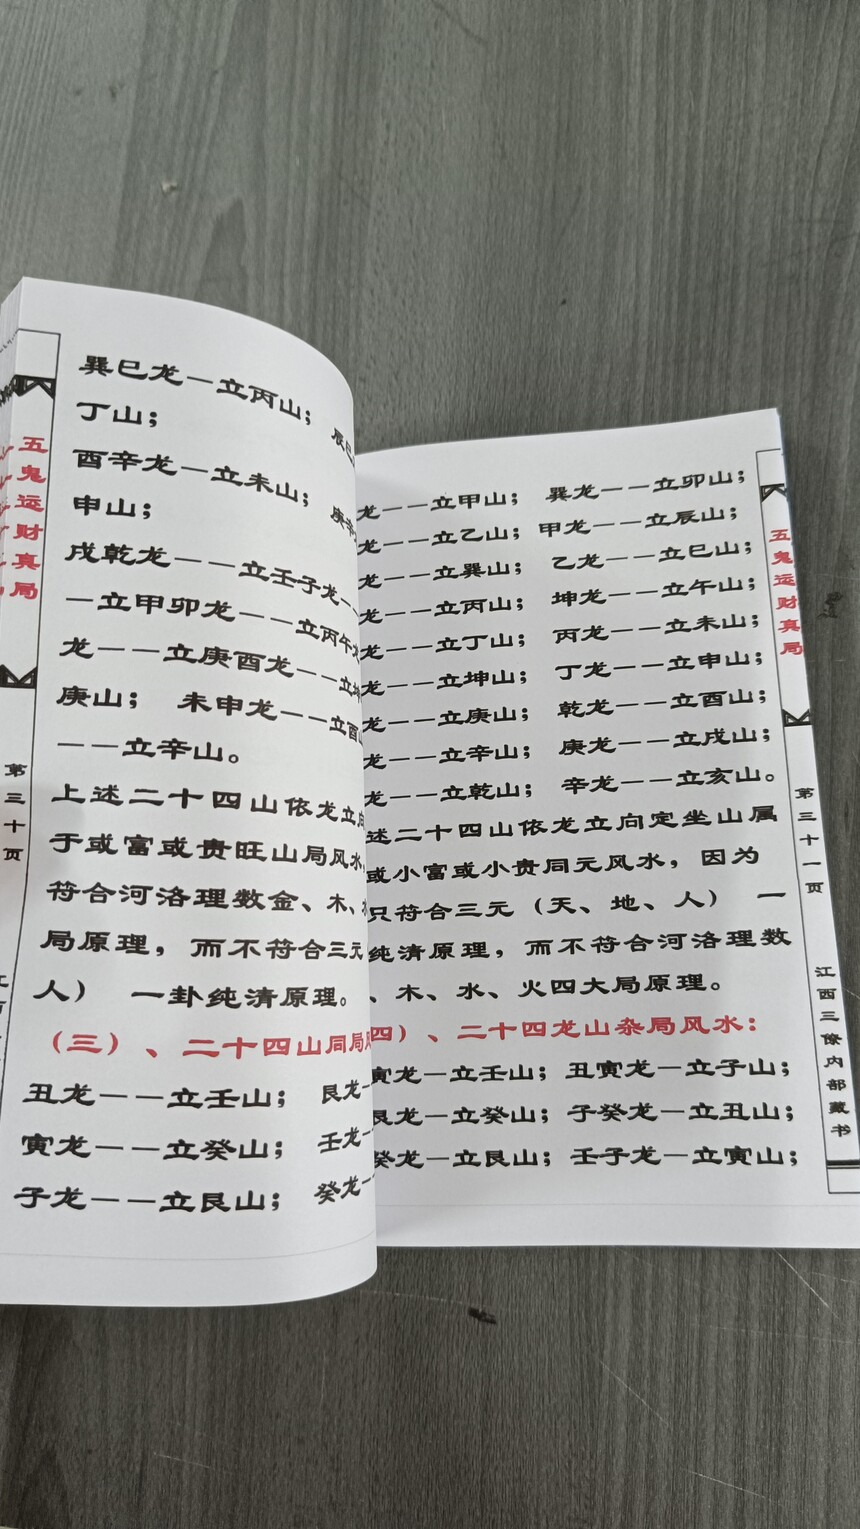 五鬼运财真局
第三十页
巽巳龙－立丙山；辰巳
丁山；
酉辛龙－立未山；庚
申山；
戌乾龙－－立壬子龙－－
－立甲卯龙－－立丙午
龙－－立庚酉龙－－立坤
庚山；未申龙－－立酉
－－立辛山。
上述二十四山依龙立向
于或富或贵旺山局风水
符合河洛理数金、木、
局原理，而不符合三元
人）一卦纯清原理。
（三）、二十四山同局
丑龙－－立壬山；艮龙－
寅龙－－立癸山；壬龙－
子龙－－立艮山；癸龙－
龙－－立甲山；巽龙－－立卯山；
龙－－立乙山；甲龙－－立辰山；
龙－－立巽山；乙龙－－立巳山；
龙－－立丙山；坤龙－－立午山；
龙－－立丁山；丙龙－－立未山；
龙－－立坤山；丁龙－－立申山；
龙－－立庚山；乾龙－－立酉山；
龙－－立辛山；庚龙－－立戌山；
龙－－立乾山；辛龙－－立亥山。
述二十四山依龙立向定坐山属
或小富或小贵同元风水，因为
只符合三元（天、地、人）一
纯清原理，而不符合河洛理数
、木、水、火四大局原理。
四）、二十四龙山杂局风水：
寅龙－立壬山；丑寅龙－立子山；
艮龙－立癸山；子癸龙－立丑山；
癸龙－立艮山；壬子龙－立寅山；
五鬼运财真局
第三十一页
江西三僚内部藏书